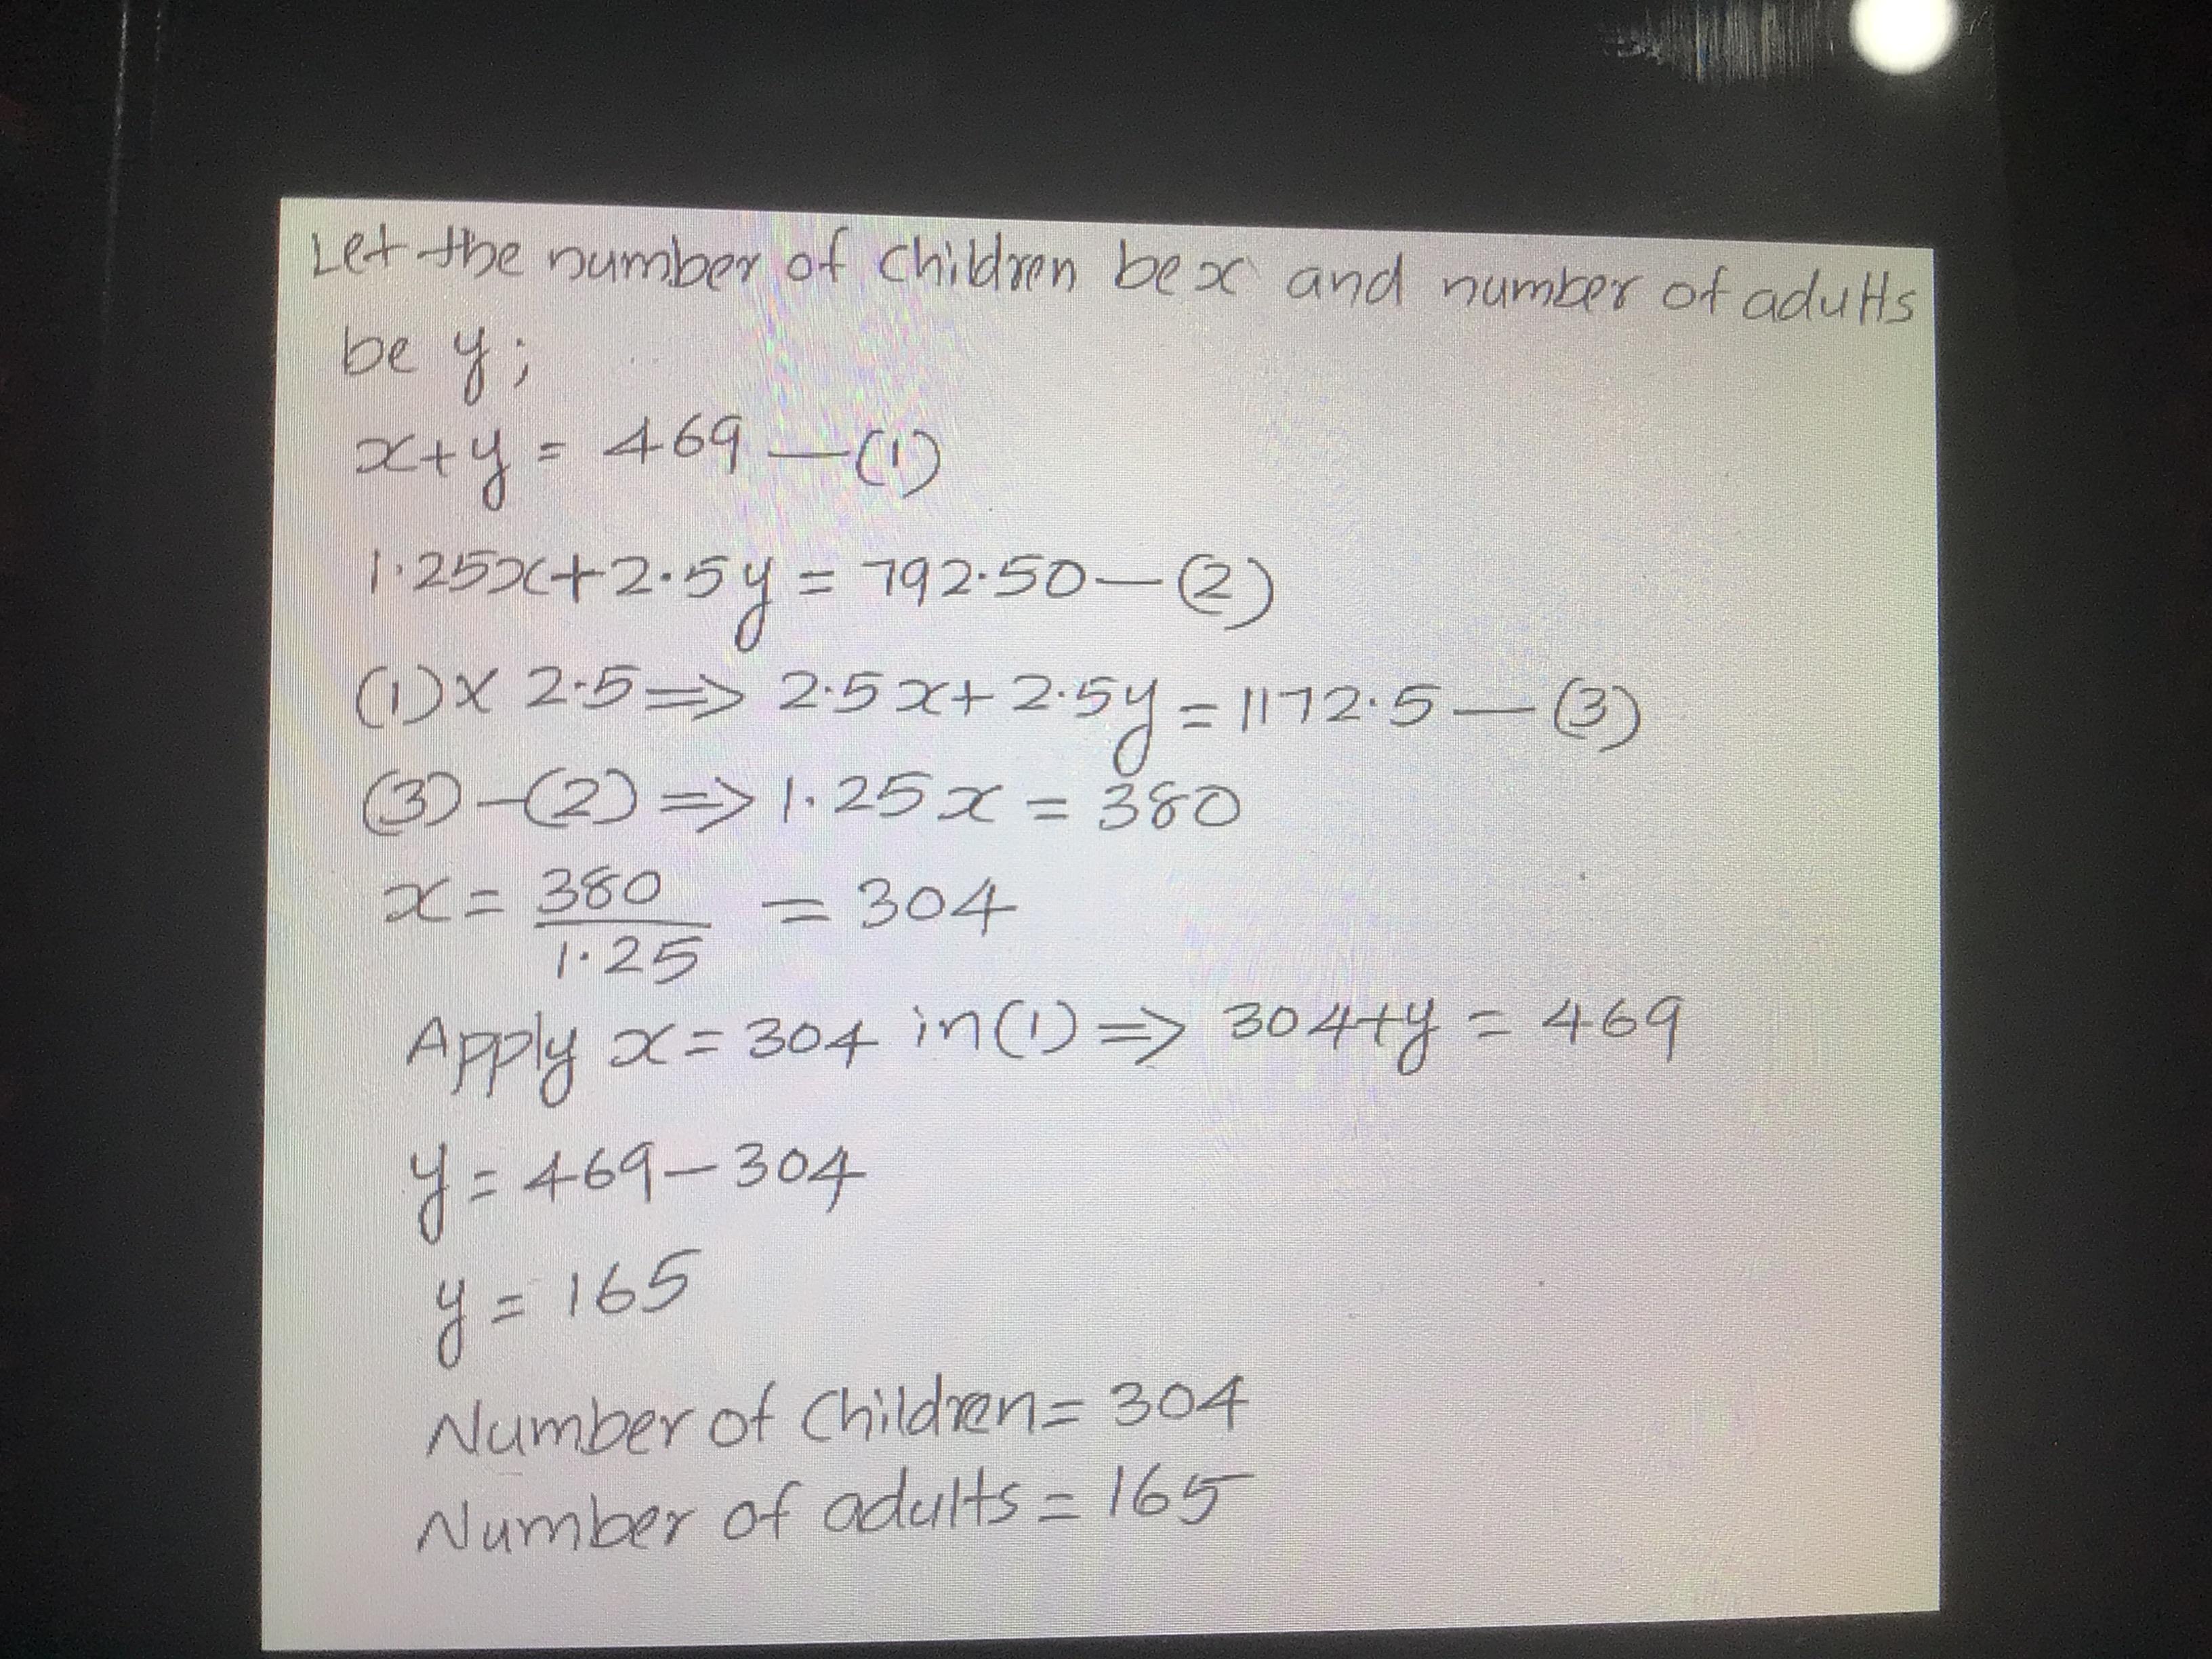 Let the number of children be x and number of adults
be y;
x+y = 469 —(1)
1.25x+2.5y = 792.50 —(2)
(1)x 2.5 => 2.5x+2.5y = 1172.5 —(3)
(3)-(2) => 1.25x = 380
x = 380/1.25 = 304
Apply x = 304 in (1) => 304+y = 469
y = 469-304
y = 165
Number of Children = 304
Number of adults = 165